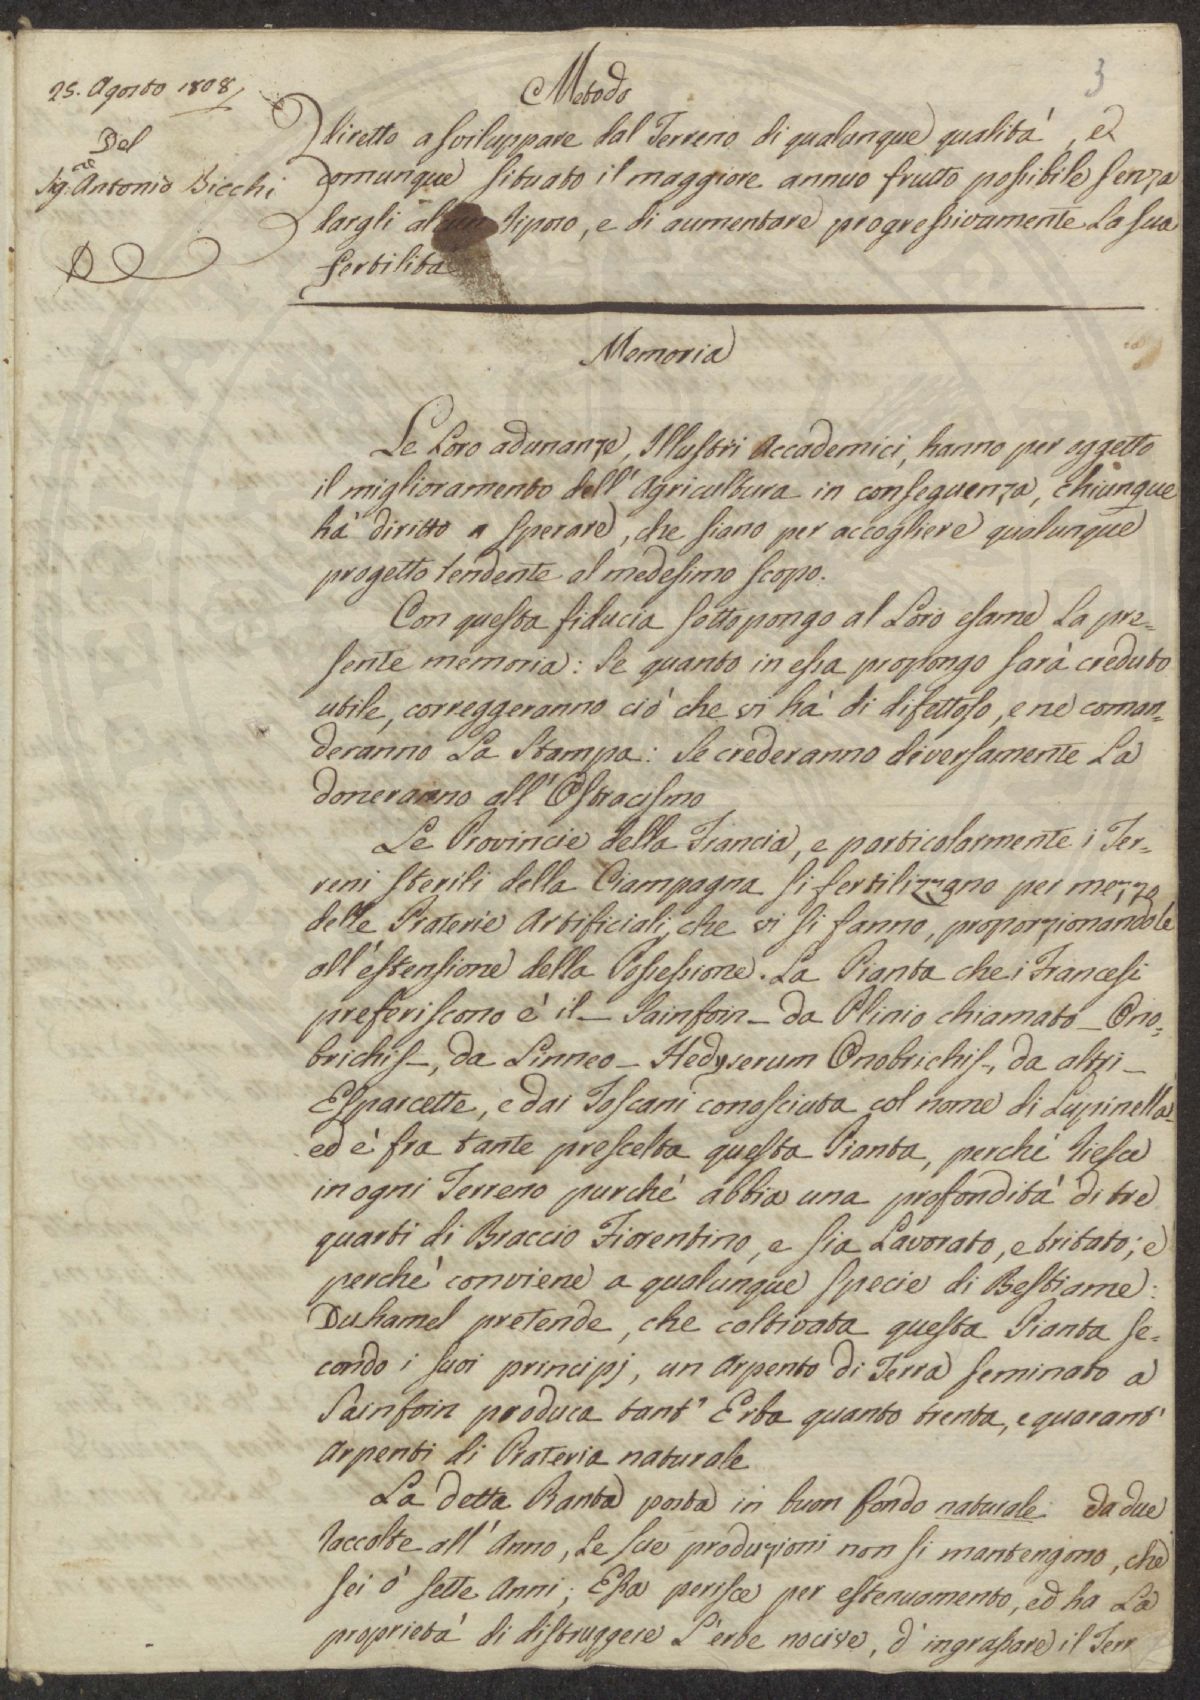 25. Agosto 1808
Del
Sig.re Antonio Bicchi
3
Metodo
diretto a sviluppare dal Terreno di qualunque qualità, e
comunque situato il maggiore annuo frutto possibile senza
dargli alcun riposo, e di aumentare progressivamente La sua
fertilità
Memoria
Le Loro adunanze, Illustri Accademici, hanno per oggetto
il miglioramento dell'Agricultura in conseguenza, chiunque
hà diritto a sperare, che siano per accogliere qualunque
progetto tendente al medesimo scopo.
Con questa fiducia sottopongo al Loro esame La pre=
sente memoria: Se quanto in essa propongo sarà creduto
utile, correggeranno ciò che vi hà di difettoso, e ne coman=
deranno La Stampa: Se crederanno diversamente La
doneranno all'Ostracismo
Le Provincie della Francia, e particolarmente i Ter=
reni sterili della Ciampagna si fertilizzano per mezzo
delle Praterie Artificiali, che vi si fanno, proporzionandole
all'estensione della Possessione. La Pianta che i Francesi
preferiscono è il - Sainfoin - da Plinio chiamato - Ono=
brichis -, da Linneo - Hedyserum Onobrichis -, da altri -
Esparcette, e dai Toscani conosciuta col nome di Lupinella
ed è fra tante prescelta questa Pianta, perchè riesce
in ogni Terreno purchè abbia una profondità di tre
quarti di Braccio Fiorentino, e sia Lavorato, e tritato; e
perchè conviene a qualunque specie di Bestiame:
Duhamel pretende, che coltivata questa Pianta se=
condo i suoi principj, un Arpento di Terra seminato a
Sainfoin produca tant' Erba quanto trenta, e quarant'
Arpenti di Prateria naturale
La detta Pianta posta in buon fondo naturale da due
raccolte all'Anno, Le sue produzioni non si mantengono, che
sei ò sette Anni; Essa perisce per estenuamento, ed ha La
proprietà di distruggere L'erbe nocive, d'ingrassare il Terr